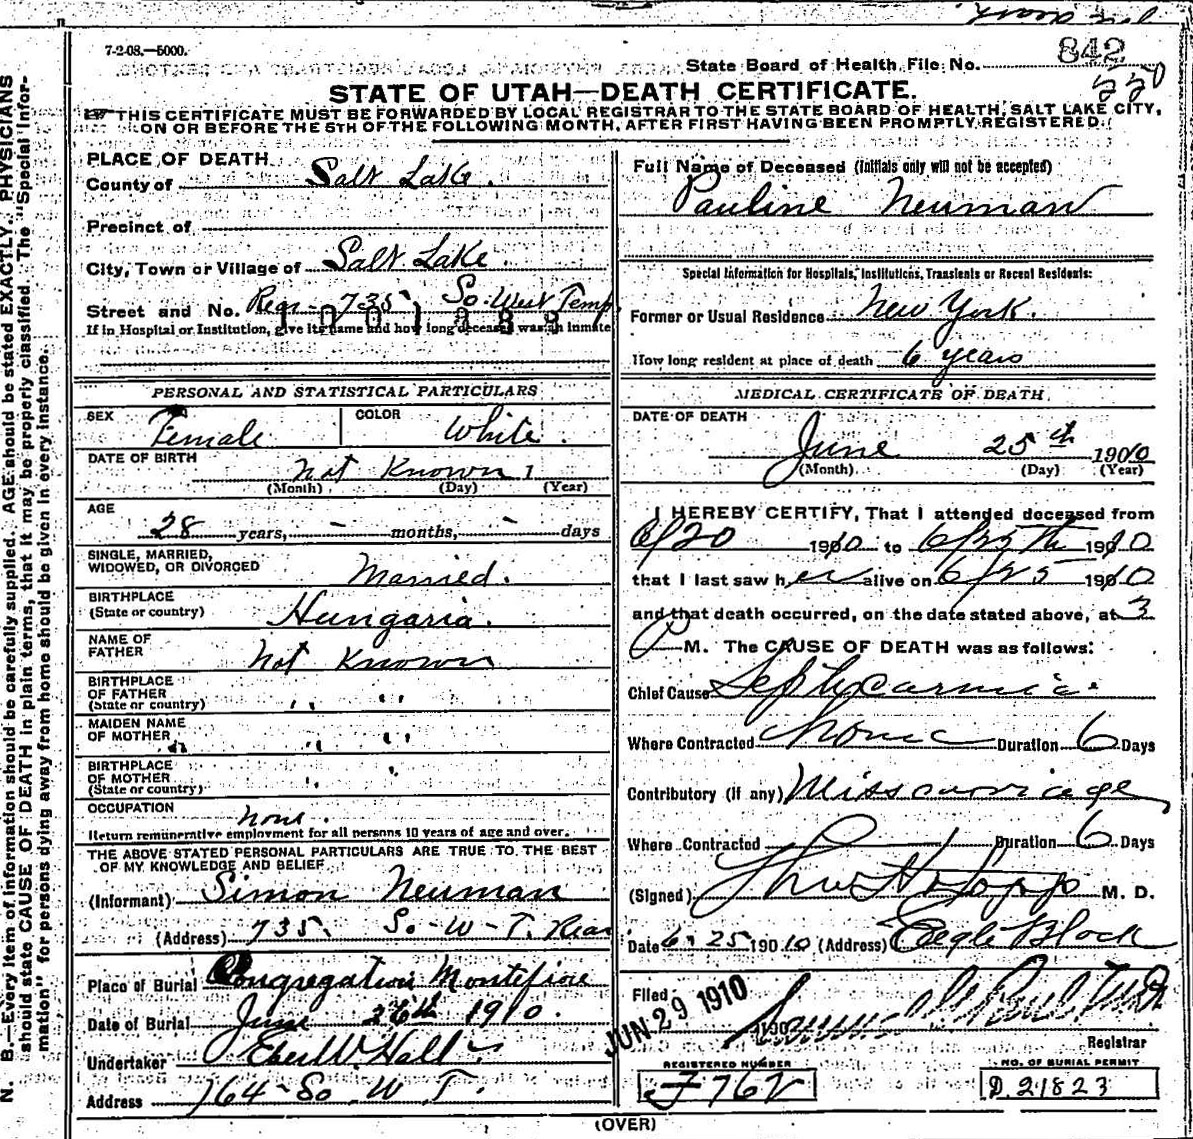 7-2-08.—5000.
State Board of Health, File No. 842
550
STATE OF UTAH—DEATH CERTIFICATE.
THIS CERTIFICATE MUST BE FORWARDED BY LOCAL REGISTRAR TO THE STATE BOARD OF HEALTH, SALT LAKE CITY,
ON OR BEFORE THE 5TH OF THE FOLLOWING MONTH, AFTER FIRST HAVING BEEN PROMPTLY REGISTERED.
PLACE OF DEATH
County of Salt Lake.
Precinct of
City, Town or Village of Salt Lake.
Street and No. Rear 735 So. West Temp
If in Hospital or Institution, give its name and how long deceased was an inmate
PERSONAL AND STATISTICAL PARTICULARS
SEX Female COLOR White.
DATE OF BIRTH Not Known 1
(Month) (Day) (Year)
AGE
28 years, - months, - days
SINGLE, MARRIED,
WIDOWED, OR DIVORCED Married.
BIRTHPLACE
(State or country) Hungaria.
NAME OF
FATHER Not Known
BIRTHPLACE
OF FATHER
(State or country) " "
MAIDEN NAME
OF MOTHER " "
BIRTHPLACE
OF MOTHER
(State or country) " "
OCCUPATION None.
Return remunerative employment for all persons 10 years of age and over.
THE ABOVE STATED PERSONAL PARTICULARS ARE TRUE TO THE BEST
OF MY KNOWLEDGE AND BELIEF
(Informant) Simon Neuman
(Address) 735. So-W-T. Rear
Place of Burial Congregation Montefiore
Date of Burial June 26th 1910.
Undertaker Eber W. Hall
Address 164-So W T.
Full Name of Deceased (Initials only will not be accepted)
Pauline Neuman
Special Information for Hospitals, Institutions, Transients or Recent Residents:
Former or Usual Residence New York.
How long resident at place of death 6 years
MEDICAL CERTIFICATE OF DEATH
DATE OF DEATH
June 25th 1910
(Month) (Day) (Year)
I HEREBY CERTIFY, That I attended deceased from
6/20 1910 to 6/25th 1910
that I last saw her alive on 6/25 1910
and that death occurred, on the date stated above, at 3
P M. The CAUSE OF DEATH was as follows:
Chief Cause Septycaemia.
Where Contracted Home Duration 6 Days
Contributory (if any) Misscarriage
Where Contracted Duration 6 Days
(Signed) M. D.
Date 6-25 1910 (Address) Eagle Block
Filed JUN 29 1910 190
Registrar
REGISTERED NUMBER
F 762
NO. OF BURIAL PERMIT
D 21823
(OVER)
N. B.—Every item of information should be carefully supplied. AGE should be stated EXACTLY. PHYSICIANS
should state CAUSE OF DEATH in plain terms, that it may be properly classified. The "Special Infor-
mation" for persons dying away from home should be given in every instance.